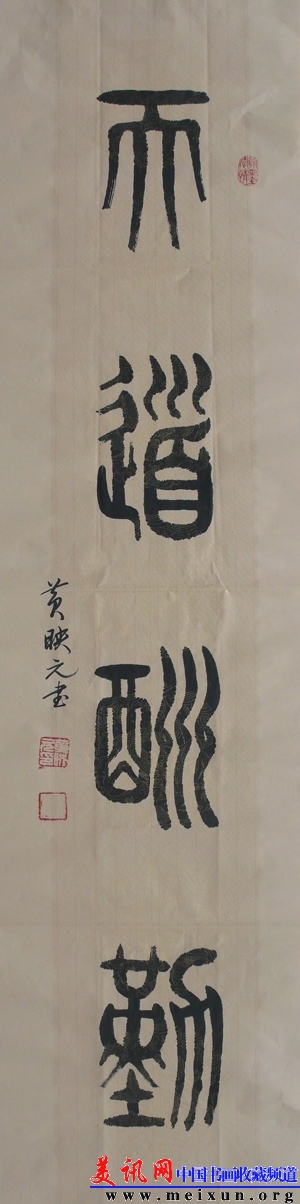 天道酬勤
黄映元书
美讯网 中国书画收藏频道
www.meixun.org